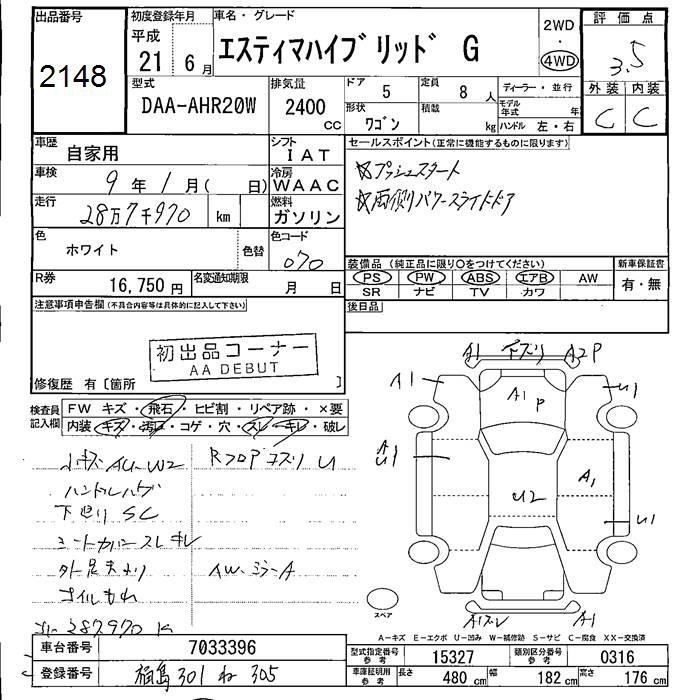 出品番号
2148
初度登録年月
平成
21 6月
車名・グレード
エスティマハイブリッド G
2WD
・
4WD
評価点
3.5
外装 内装
C C
型式
DAA-AHR20W
排気量
2400
CC
ドア 5
形状
ワゴン
定員 8 人
積載
kg
ディーラー・並行
モデル
年式 年
ハンドル 左・右
車歴
自家用
シフト
IAT
車検
9年1月( 日)
冷房
WAAC
走行
28万7千970 km
燃料
ガソリン
色
ホワイト
色替
色コード
070
R券
16,750円
名変通知期限
月 日
セールスポイント(正常に機能するものに限ります)
☆プッシュスタート
☆両側パワースライドドア
装備品(純正品に限り○をつけてください)
PS PW ABS エアB AW
SR ナビ TV カワ
新車保証書
有・無
後日品
注意事項申告欄(不具合内容等は具体的に記入して下さい)
初出品コーナー
AA DEBUT
修復歴 有〔箇所 〕
検査員
記入欄
FW キズ・飛石・ヒビ割・リペア跡・×要
内装・キズ・汚れ・コゲ・穴・スレ・キレ・破レ
小キズ AU-W2
RフロP コスリ U
ハンドルハゲ
下廻り SC
シートカバースレキレ
AW・ミラーA
オイルもれ
287970 K
A1 下ズリ A2P
A1
A1 P
U1
A
U1
U2
A1
U1
A1
スペア
A-キズ E-エクボ U-凹み W-補修跡 S-サビ C-腐食 XX-交換済
車台番号
7033396
登録番号
福島301 ね 305
型式指定番号
参考
15327
類別区分番号
参考
0316
車庫証明用
参考
長さ 480 cm
幅 182 cm
高さ 176 cm